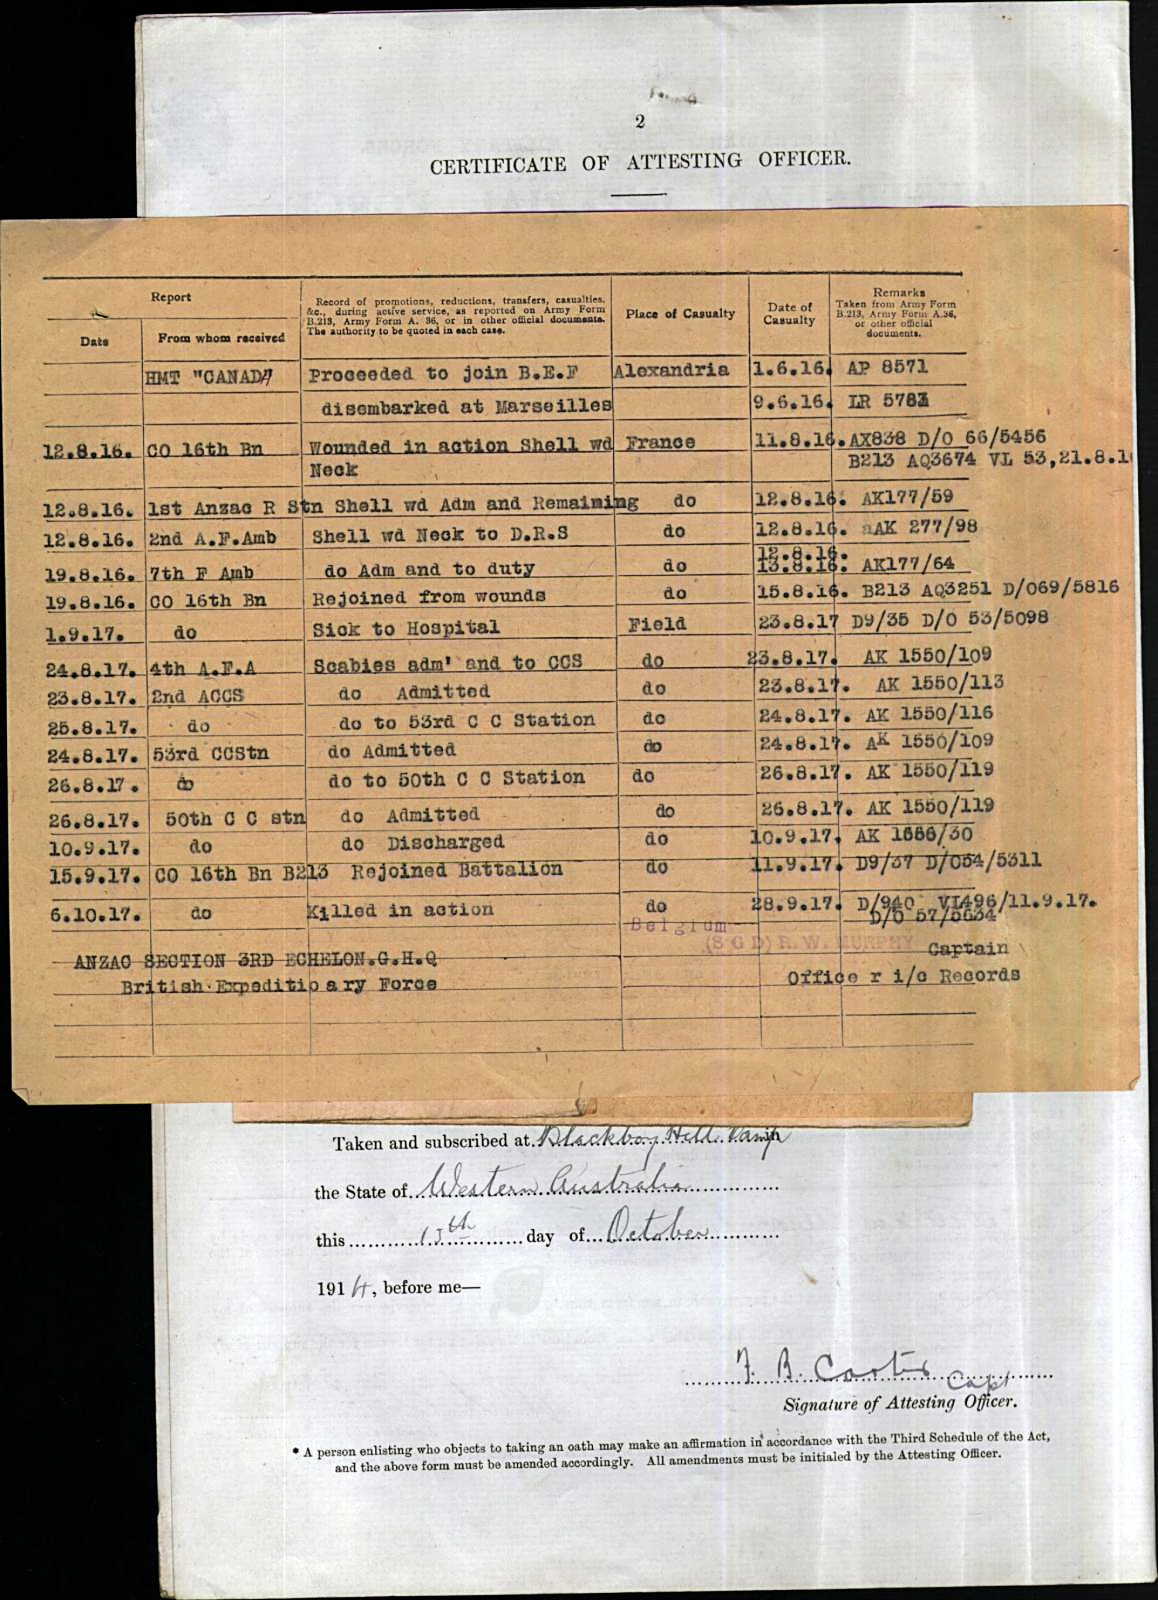 2
CERTIFICATE OF ATTESTING OFFICER.
Report
Date
From whom received
Record of promotions, reductions, transfers, casualties,
&c., during active service, as reported on Army Form
B.213, Army Form A. 36, or in other official documents.
The authority to be quoted in each case.
Place of Casualty
Date of
Casualty
Remarks
Taken from Army Form
B.213, Army Form A.36,
or other official
documents.
HMT "CANADA" Proceeded to join B.E.F Alexandria 1.6.16. AP 8571
disembarked at Marseilles 9.6.16. LR 5783
12.8.16. CO 16th Bn Wounded in action Shell wd France 11.8.16. AX838 D/O 66/5456
Neck B213 AQ3674 VL 53,21.8.1
12.8.16. 1st Anzac R Stn Shell wd Adm and Remaining do 12.8.16. AK177/59
12.8.16. 2nd A.F.Amb Shell wd Neck to D.R.S do 12.8.16. aAK 277/98
12.8.16.
19.8.16. 7th F Amb do Adm and to duty do 13.8.16. AK177/64
19.8.16. CO 16th Bn Rejoined from wounds do 15.8.16. B213 AQ3251 D/069/5816
1.9.17. do Sick to Hospital Field 23.8.17 D9/35 D/O 53/5098
24.8.17. 4th A.F.A Scabies adm' and to CCS do 23.8.17. AK 1550/109
23.8.17. 2nd ACCS do Admitted do 23.8.17. AK 1550/113
25.8.17. do do to 53rd C C Station do 24.8.17. AK 1550/116
24.8.17. 53rd CCStn do Admitted do 24.8.17. AK 1550/109
26.8.17. do do to 50th C C Station do 26.8.17. AK 1550/119
26.8.17. 50th C C stn do Admitted do 26.8.17. AK 1550/119
10.9.17. do do Discharged do 10.9.17. AK 1686/30
15.9.17. CO 16th Bn B213 Rejoined Battalion do 11.9.17. D9/37 D/054/5311
6.10.17. do Killed in action do 28.9.17. D/940 VL496/11.9.17.
D/O 57/5634
Belgium
(SGD) R. W. MURPHY Captain
ANZAC SECTION 3RD ECHELON.G.H.Q
British Expeditionary Force Officer i/c Records
Taken and subscribed at Blackboy Hill Camp
the State of Western Australia
this 13th day of October
1914, before me—
F. B. Carter Capt
Signature of Attesting Officer.
* A person enlisting who objects to taking an oath may make an affirmation in accordance with the Third Schedule of the Act,
and the above form must be amended accordingly. All amendments must be initialed by the Attesting Officer.